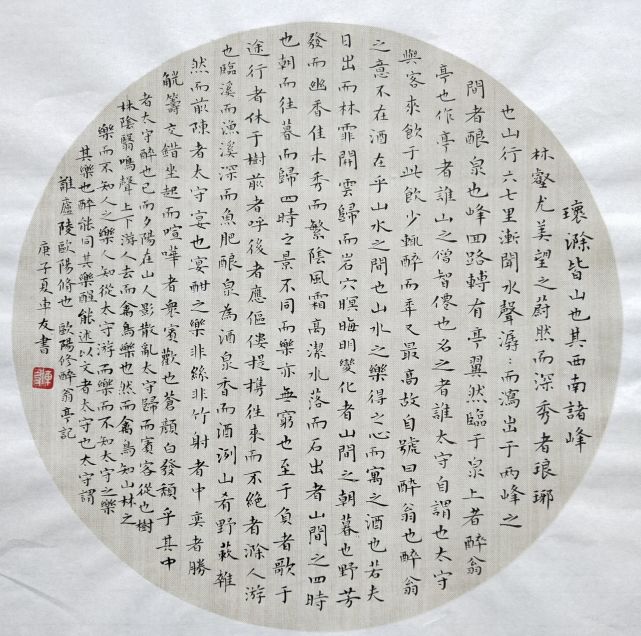 環滁皆山也其西南諸峰
林壑尤美望之蔚然而深秀者琅琊
也山行六七里漸聞水聲潺潺而瀉出于兩峰之
間者釀泉也峰回路轉有亭翼然臨于泉上者醉翁
亭也作亭者誰山之僧智僊也名之者誰太守自謂也太守
與客來飲于此飲少輒醉而年又最高故自號曰醉翁也醉翁
之意不在酒在乎山水之間也山水之樂得之心而寓之酒也若夫
日出而林霏開雲歸而岩穴暝晦明變化者山間之朝暮也野芳
發而幽香佳木秀而繁陰風霜高潔水落而石出者山間之四時
也朝而往暮而歸四時之景不同而樂亦無窮也至于負者歌于
途行者休于樹前者呼後者應傴僂提攜往來而不絕者滁人游
也臨溪而漁溪深而魚肥釀泉為酒泉香而酒洌山肴野蔌雜
然而前陳者太守宴也宴酣之樂非絲非竹射者中奕者勝
觥籌交錯坐起而喧嘩者衆賓歡也蒼顏白發頹乎其中
者太守醉也已而夕陽在山人影散亂太守歸而賓客從也樹
林陰翳鳴聲上下游人去而禽鳥樂也然而禽鳥知山林之
樂而不知人之樂人知從太守游而樂而不知太守之樂
其樂也醉能同其樂醒能述以文者太守也太守謂
誰廬陵歐陽修也 歐陽修醉翁亭記
庚子夏車友書